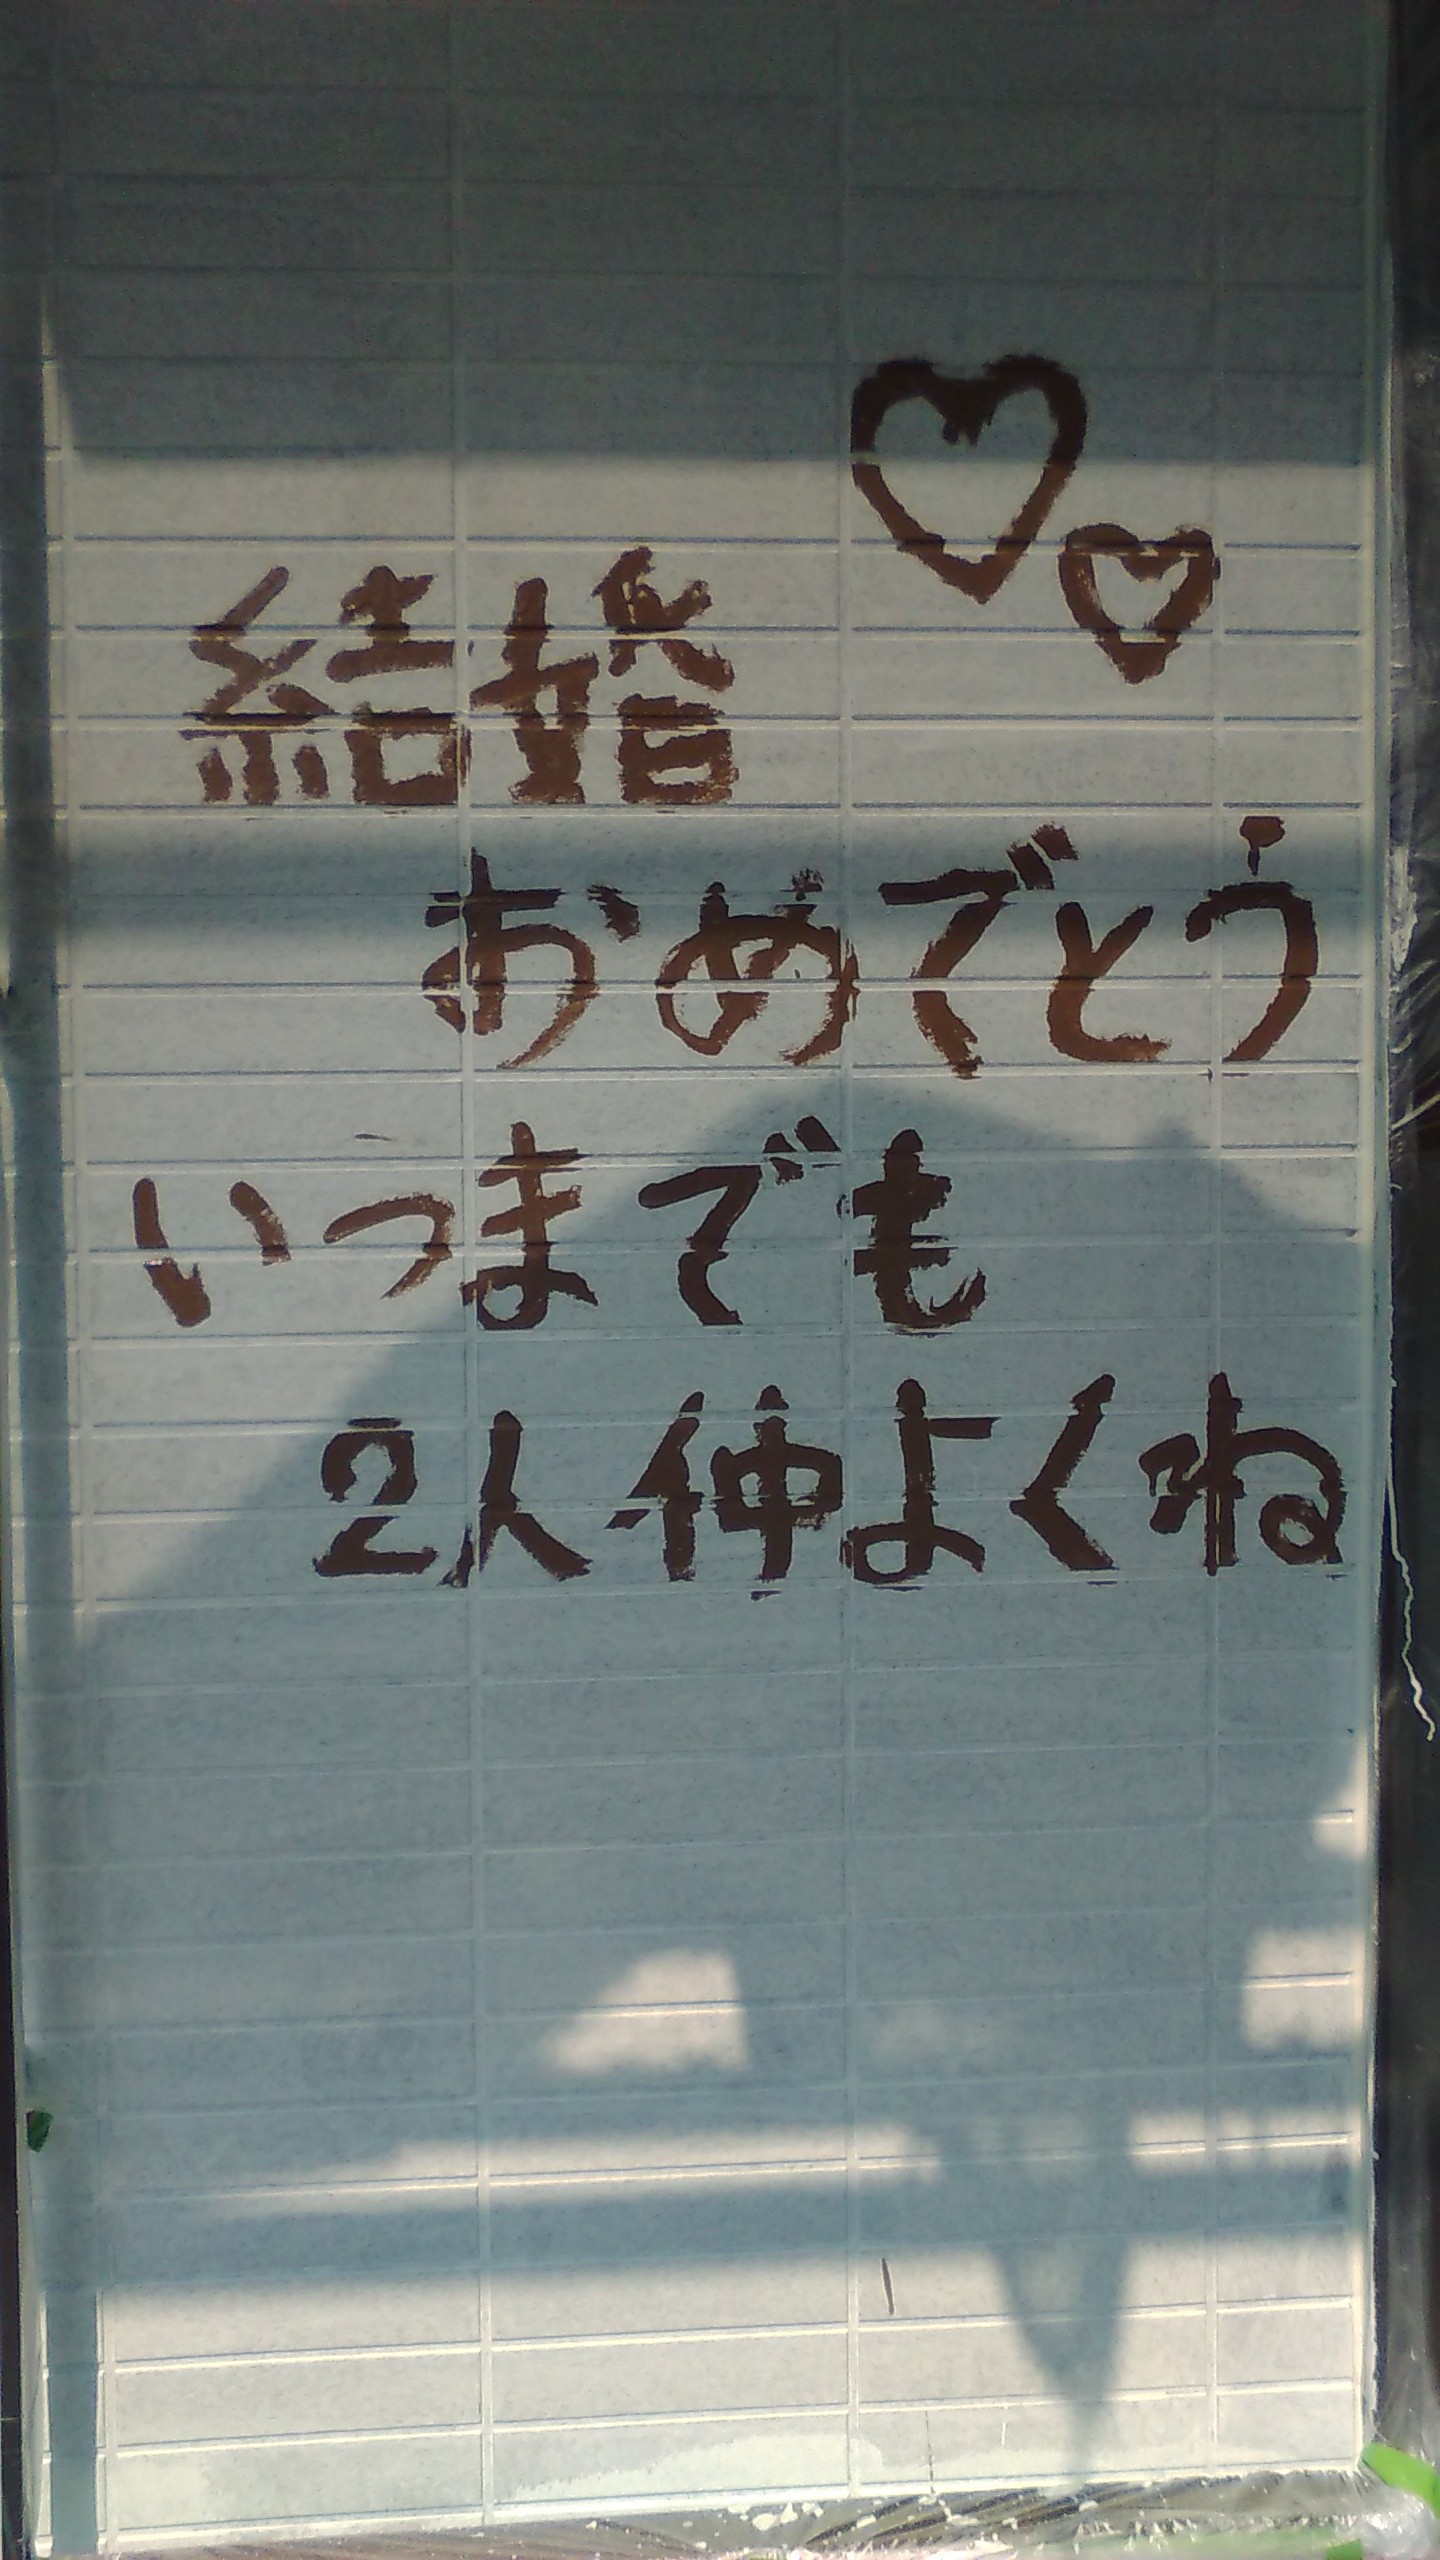 結婚
おめでとう
いつまでも
2人仲よくね